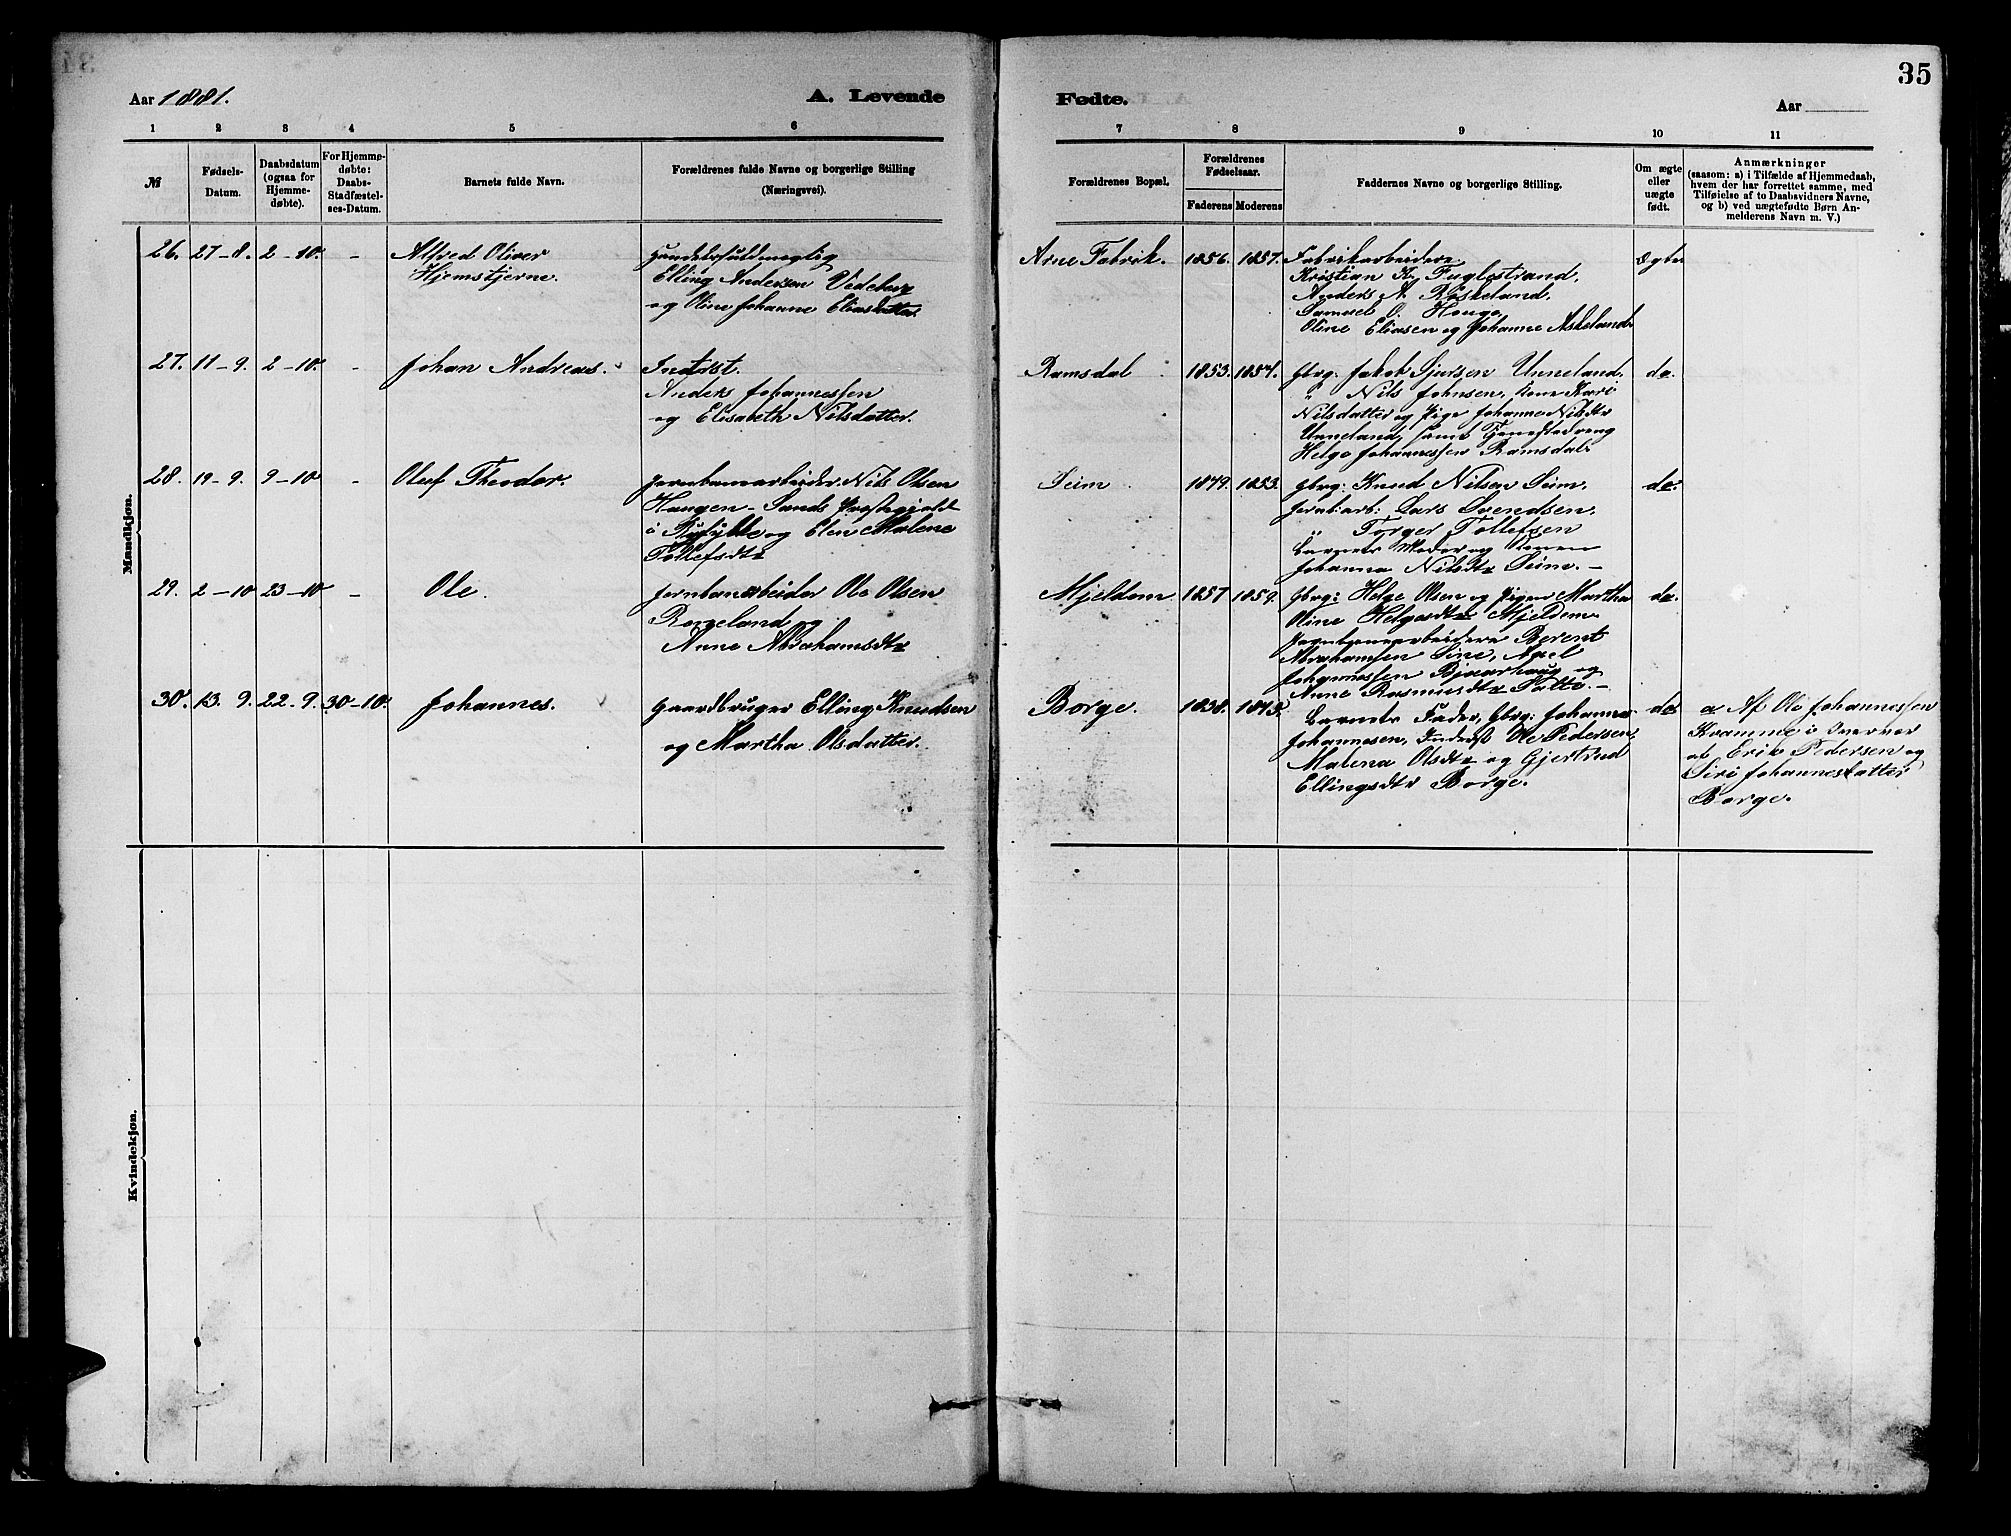 35
Aar 1881.
A. Levende
Fødte.
Aar
1 2 3 4 5 6
7 8 9 10 11
№
Fødsels-
Datum.
Daabsdatum
(ogsaa for
Hjemme-
døbte).
For Hjemme-
døbte:
Daabs-
Stadfæstel-
ses-Datum.
Barnets fulde Navn.
Forældrenes fulde Navne og borgerlige Stilling
(Næringsvei).
Forældrenes Bopæl.
Forældrenes
Fødselsaar.
Faderens Moderens
Faddernes Navne og borgerlige Stilling.
Om ægte
eller
uægte
født.
Anmærkninger
(saasom: a) i Tilfælde af Hjemmedaab,
hvem der har forrettet samme, med
Tilføielse af to Daabsvidners Navne,
og b) ved uægtefødte Børn An-
melderens Navn m. V.)
Mandkjøn.
26. 27-8. 2-10. -
Alfred Oliver
Hjemstjerne.
Handelsfuldmægtig
Elling Andersen
og Oline Johanne Eliasdatter.
Arne Fabrik. 1856. 1857.
Fabrikarbeidere
Kristian K. Fuglestrand,
Anders A. Røskeland,
Samuel O. Hauge,
Oline Eliasen og Johanne Askeland.
Ægte
27. 11-9. 2-10. -
Johan Andreas.
Inderst.
Anders Johannessen
og Elisabeth Nilsdatter.
Ramsdal 1853. 1854.
Gbrg. Jakob Sjursen Unneland.
" Nils Johnsen, Kone Kari
Nilsdatter og Pige Johanne Nilsdtr
Unneland, samt Tjenestedreng
Helge Johannessen Ramsdal.
do.
28. 19-9. 9-10 -
Oluf Theodor.
Jernbanearbeider Nils Olsen
Haugen - Sands Præstegjeld
i Ryfylke og Elen Malene
Tollefsdtr
Seim 1849. 1853.
Gbrg: Knud Nilsen Seim.
Jernb:arb: Lars Svendsen.
" Torger Tollefsen
Barnets Moder og Konen
Johanna Nilsdtr Seim. -
do.
29. 2-10 23-10 -
Ole.
Jernbanearbeider Ole Olsen
Rongeland og
Anne Abrahamsdtr
Mjeldem 1857 1859.
Gbrg: Helge Olsen og Piger Martha
Oline Helgesdtr Mjeldem.
Jernbanearbeidere Berent
Abrahamsen Sine, Axel
Johannessen Bjaarhaug og
Anne Rasmusdtr -
do.
30. 13. 9. 22-9. 30-10.
Johannes.
Gaardbruger Elling Knudsen
og Martha Olsdatter.
Borge. 1838. 1843.
Barnets Fader, Gbrg: Johannes
Johannesen, Inderst Ole Pedersen,
Malena Olsdtr og Gjertrud
Ellingsdtr Borge.
do
a Af Ole Johannessen
Kvamme i Nærvær
af Erik Pedersen og
Siri Johannesdatter
Borge.
Kvindekjøn.